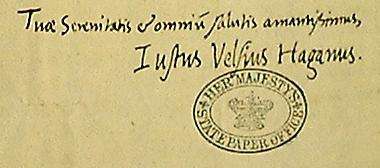 Tuæ Serenitatis & omniũ salutis amantissimus,
Iustus Velsius Haganus.
HER MAJESTY'S
STATE PAPER OFFICE